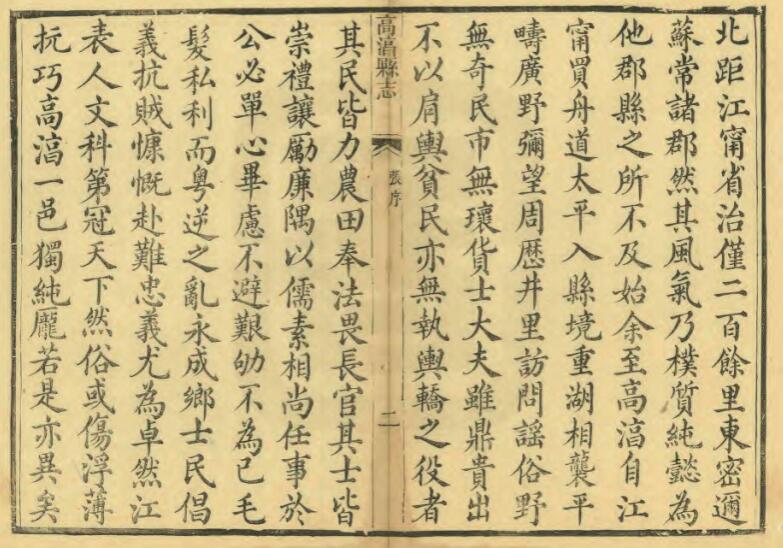 北距江甯省治僅二百餘里東密邇
蘇常諸郡然其風氣乃樸質純懿為
他郡縣之所不及始余至高淳自江
甯買舟道太平入縣境重湖相襲平
疇廣野彌望周歷井里訪問謠俗野
無奇民市無瓌貨士大夫雖鼎貴出
不以肩輿貧民亦無執輿轎之役者
高淳縣志
張序
二
其民皆力農田奉法畏長官其士皆
崇禮讓勵廉隅以儒素相尚任事於
公必單心畢慮不避艱劬不為已毛
髮私利而粤逆之亂永成鄉士民倡
義抗賊慷慨赴難忠義尤為卓然江
表人文科第冠天下然俗或傷浮薄
抏巧高淳一邑獨純龐若是亦異矣